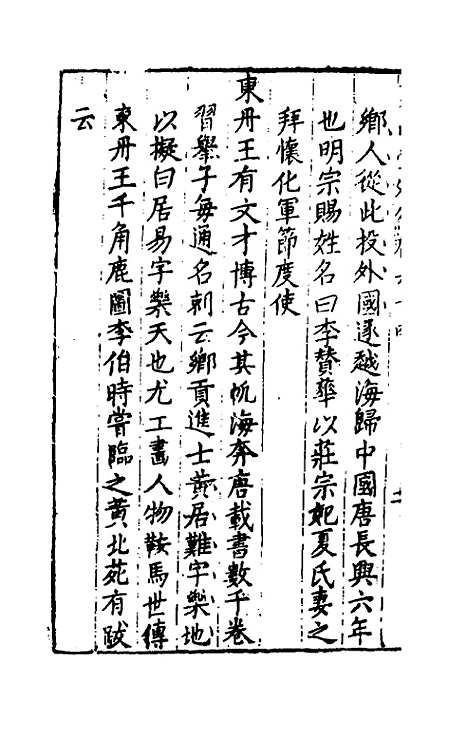 鄉人從此投外國遂越海歸中國唐長興六年
也明宗賜姓名曰李贊華以莊宗妃夏氏妻之
拜懷化軍節度使
東丹王有文才博古今其帆海奔唐載書數千卷
習舉子每通名刺云鄉貢進士黃居難字樂地
以擬白居易字樂天也尤工畫人物鞍馬世傳
東丹王千角鹿圖李伯時嘗臨之黃北苑有跋
云